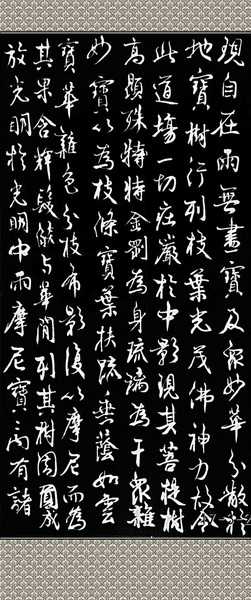 現自在雨無盡寶及眾妙華分散於
地寶樹行列枝葉光茂佛神力故令
此道場一切莊嚴於中影現其菩提樹
高顯殊特金剛為身琉璃為幹眾雜
妙寶以為枝條寶葉扶疏垂蔭如雲
寶華雜色分枝布影復以摩尼而為
其果含輝發焰與華間列其樹周圓咸
放光明於光明中雨摩尼寶內有諸